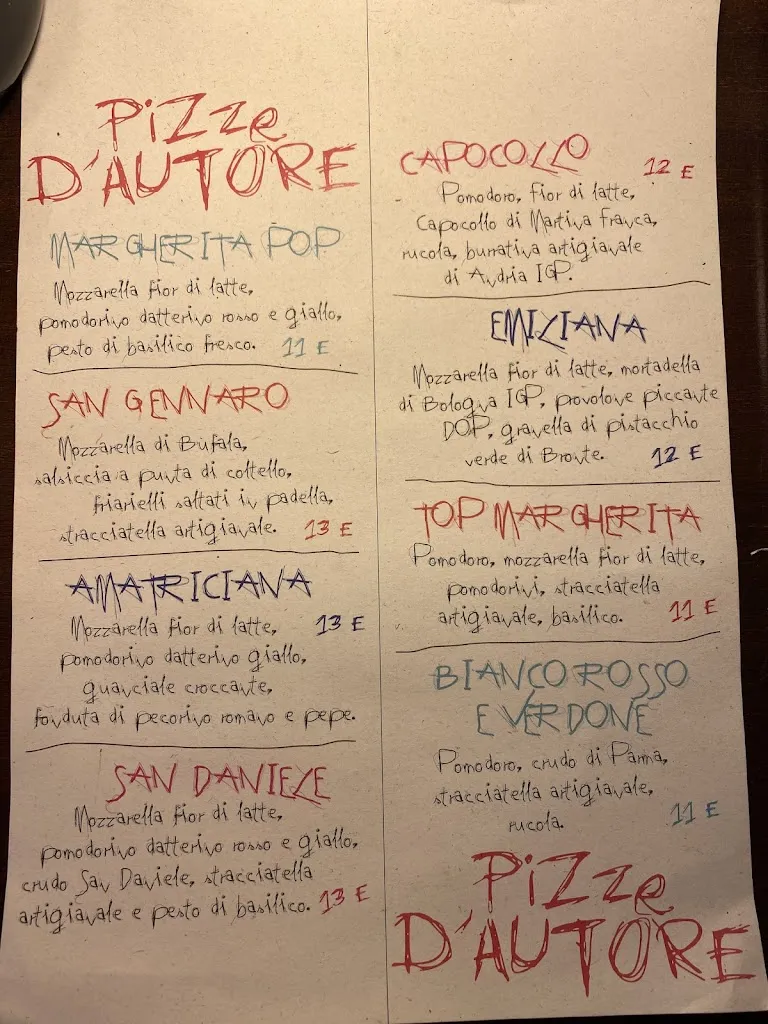 PiZZe
D'AUTORE
MARGHERITA POP
Mozzarella fior di latte,
pomodorino datterino rosso e giallo,
pesto di basilico fresco. 11 E
SAN GENNARO
Mozzarella di Bufala,
salsiccia a punta di coltello,
friarielli saltati in padella,
stracciatella artigianale. 13 E
AMATRICIANA
Mozzarella fior di latte, 13 E
pomodorino datterino giallo,
guanciale croccante,
fonduta di pecorino romano e pepe.
SAN DANIELE
Mozzarella fior di latte,
pomodorino datterino rosso e giallo,
crudo San Daniele, stracciatella
artigianale e pesto di basilico. 13 E
CAPOCOLLO 12 E
Pomodoro, fior di latte,
Capocollo di Martina Franca,
rucola, burratina artigianale
di Andria IGP.
EMILIANA
Mozzarella fior di latte, mortadella
di Bologna IGP, provolone piccante
DOP, granella di pistacchio
verde di Bronte. 12 E
TOP MARGHERITA
Pomodoro, mozzarella fior di latte,
pomodorini, stracciatella
artigianale, basilico. 11 E
BIANCO ROSSO
E VERDONE
Pomodoro, crudo di Parma,
stracciatella artigianale,
rucola. 11 E
PiZZe
D'AUTORE